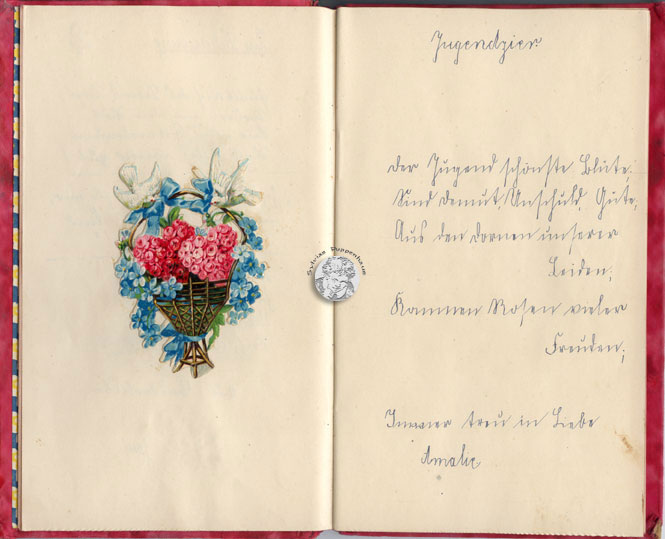 Jugendzier
Der Jugend schönste Blüte,
Sind Demut, Unschuld, Güte,
Aus den Dornen unserer
Leiden,
Kommen Rosen vieler
Freuden,
Immer treu in Liebe
Amalie
Sylvias Puppenhaus